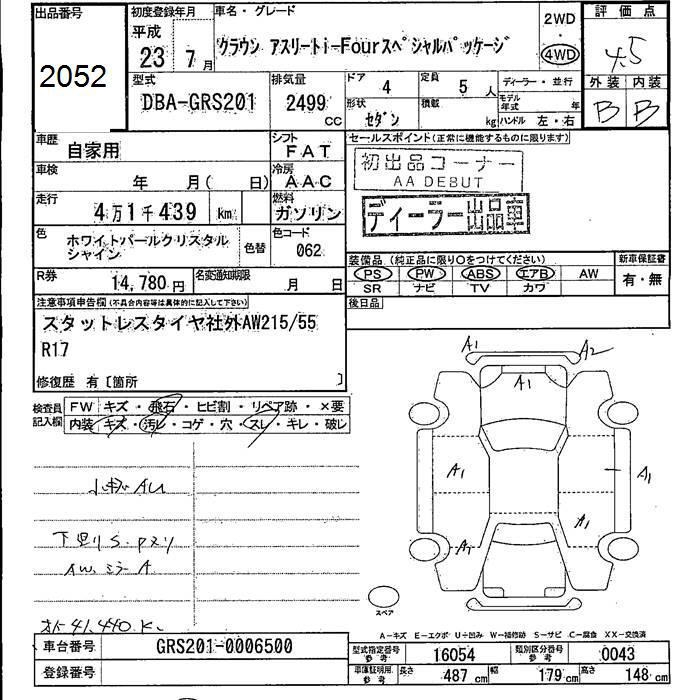 出品番号
2052
初度登録年月
平成
23 7月
車名・グレード
クラウン アスリートi-Fourスペシャルパッケージ
2WD
・
4WD
評価点
4.5
外装 内装
B B
型式
DBA-GRS201
排気量
2499 cc
ドア 4
形状 セダン
定員 5 人
積載 kg
ディーラー・並行
モデル年式 年
ハンドル 左・右
車歴
自家用
シフト
FAT
車検
年 月( 日)
冷房
AAC
走行
4万1千439 km
燃料
ガソリン
色
ホワイトパールクリスタル
シャイン
色替
色コード
062
R券
14,780円
名変通知期限
月 日
セールスポイント(正常に機能するものに限ります)
初出品コーナー
AA DEBUT
ディーラー出品車
装備品(純正品に限り○をつけてください)
PS PW ABS エアB AW
SR ナビ TV カワ
新車保証書
有・無
後日品
注意事項申告欄(不具合内容等は具体的に記入して下さい)
スタットレスタイヤ社外AW215/55
R17
修復歴 有〔箇所 〕
検査員
記入欄
FW キズ・飛石・ヒビ割・リペア跡・×要
内装 キズ・汚レ・コゲ・穴・スレ・キレ・破レ
A1 A2
A1
A1 A1
A1
下廻りS.
AW.ミラーA
41,440K
スペア
A-キズ E-エクボ U-凹み W-補修跡 S-サビ C-腐食 XX-交換済
車台番号
GRS201-0006500
登録番号
型式指定番号
参考
16054
類別区分番号
参考
0043
車庫証明用
参考
長さ 487 cm
幅 179 cm
高さ 148 cm